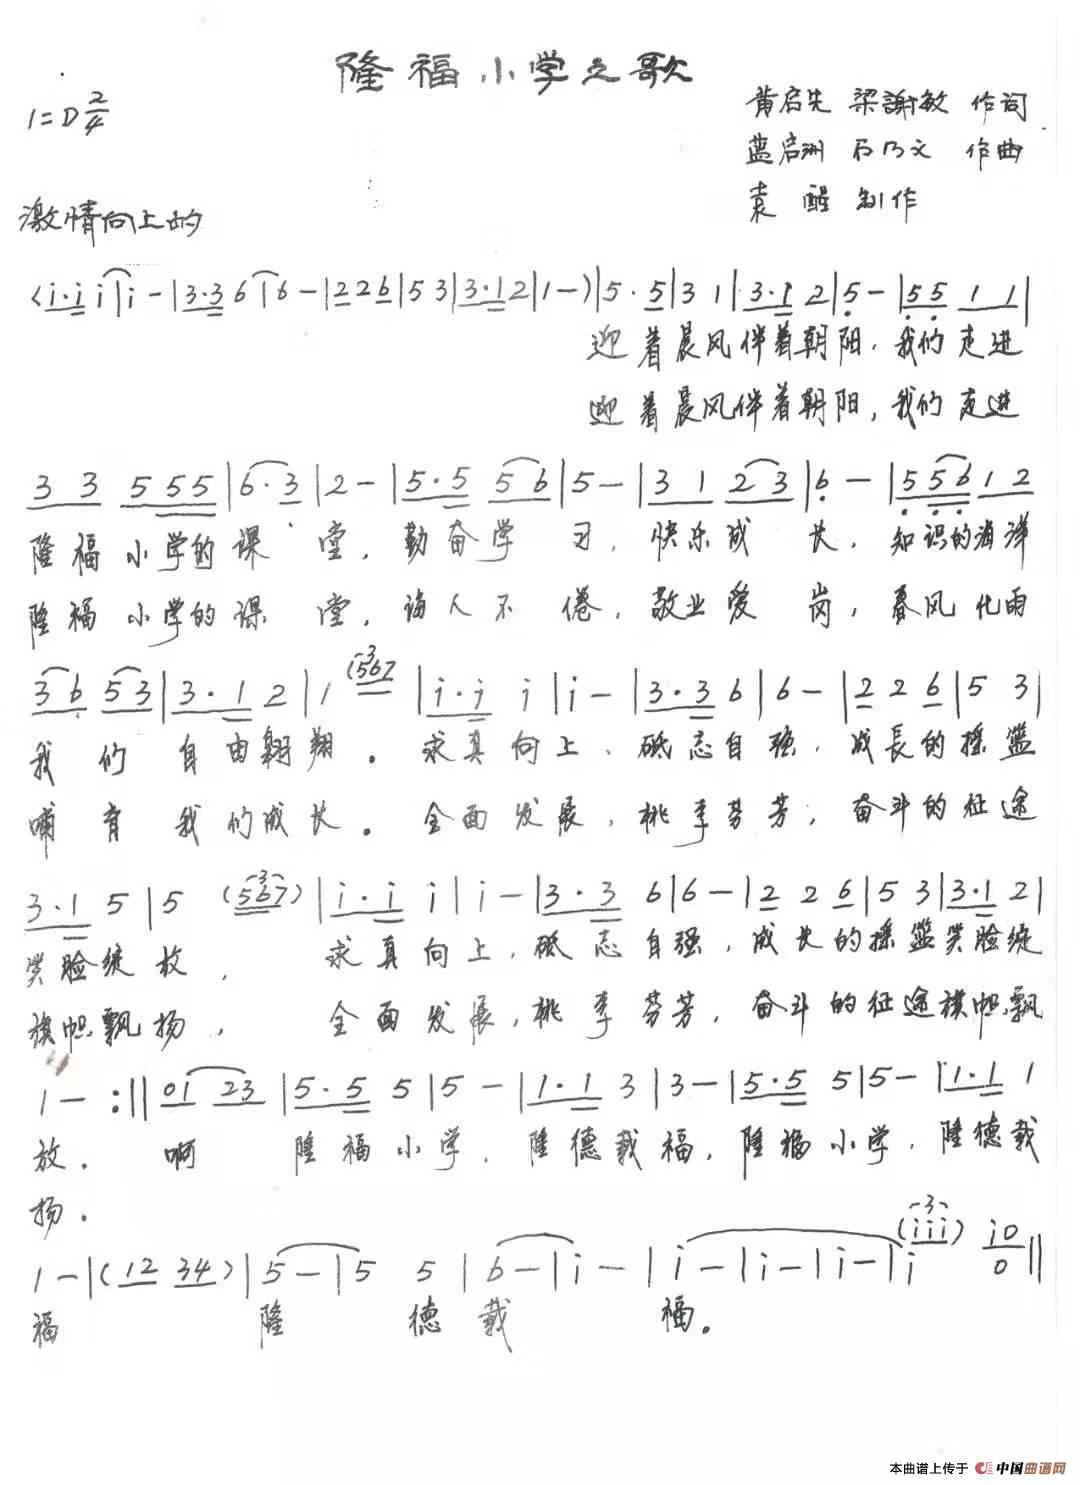 隆福小学之歌
1=D 2/4
黄启先 梁謝敏 作词
蓝启洲 石乃文 作曲
袁醒 制作
激情向上的
(i·i i|i-|3·3 6|6-|2 2 6|5 3|3·1 2|1-)|5·5|3 1|3·1 2|5-|5 5 1 1|
迎着晨风伴着朝阳,我们走进
迎着晨风伴着朝阳,我们走进
3 3 5 5 5|6·3|2-|5·5 5 6|5-|3 1 2 3|6-|5 5 6 1 2
隆福小学的课堂,勤奋学习,快乐成长,知识的海洋
隆福小学的课堂,诲人不倦,敬业爱岗,春风化雨
3 6 5 3|3·1 2|1 (5 6 7 |i·i i|i-|3·3 6|6-|2 2 6|5 3|
我们自由翱翔。求真向上,砥志自强,成長的摇篮
哺育我们成长。全面发展,桃李芬芳,奋斗的征途
3·1 5|5 (5 6 7)|i·i i|i-|3·3 6|6-|2 2 6|5 3|3·1 2|
笑脸绽放,求真向上,砥志自强,成长的摇篮笑脸绽
旗帜飘扬,全面发展,桃李芬芳,奋斗的征途旗帜飘
1-:||0 1 2 3|5·5 5|5-|1·1 3|3-|5·5 5|5-|1·1 1
放。啊 隆福小学,隆德载福,隆福小学,隆德载
扬。
1-|(1 2 3 4)|5-|5 5|6-|i-|i-|i-|i-|i (i i i) i 0 0||
福 隆 德载 福。
本曲谱上传于 中国曲谱网